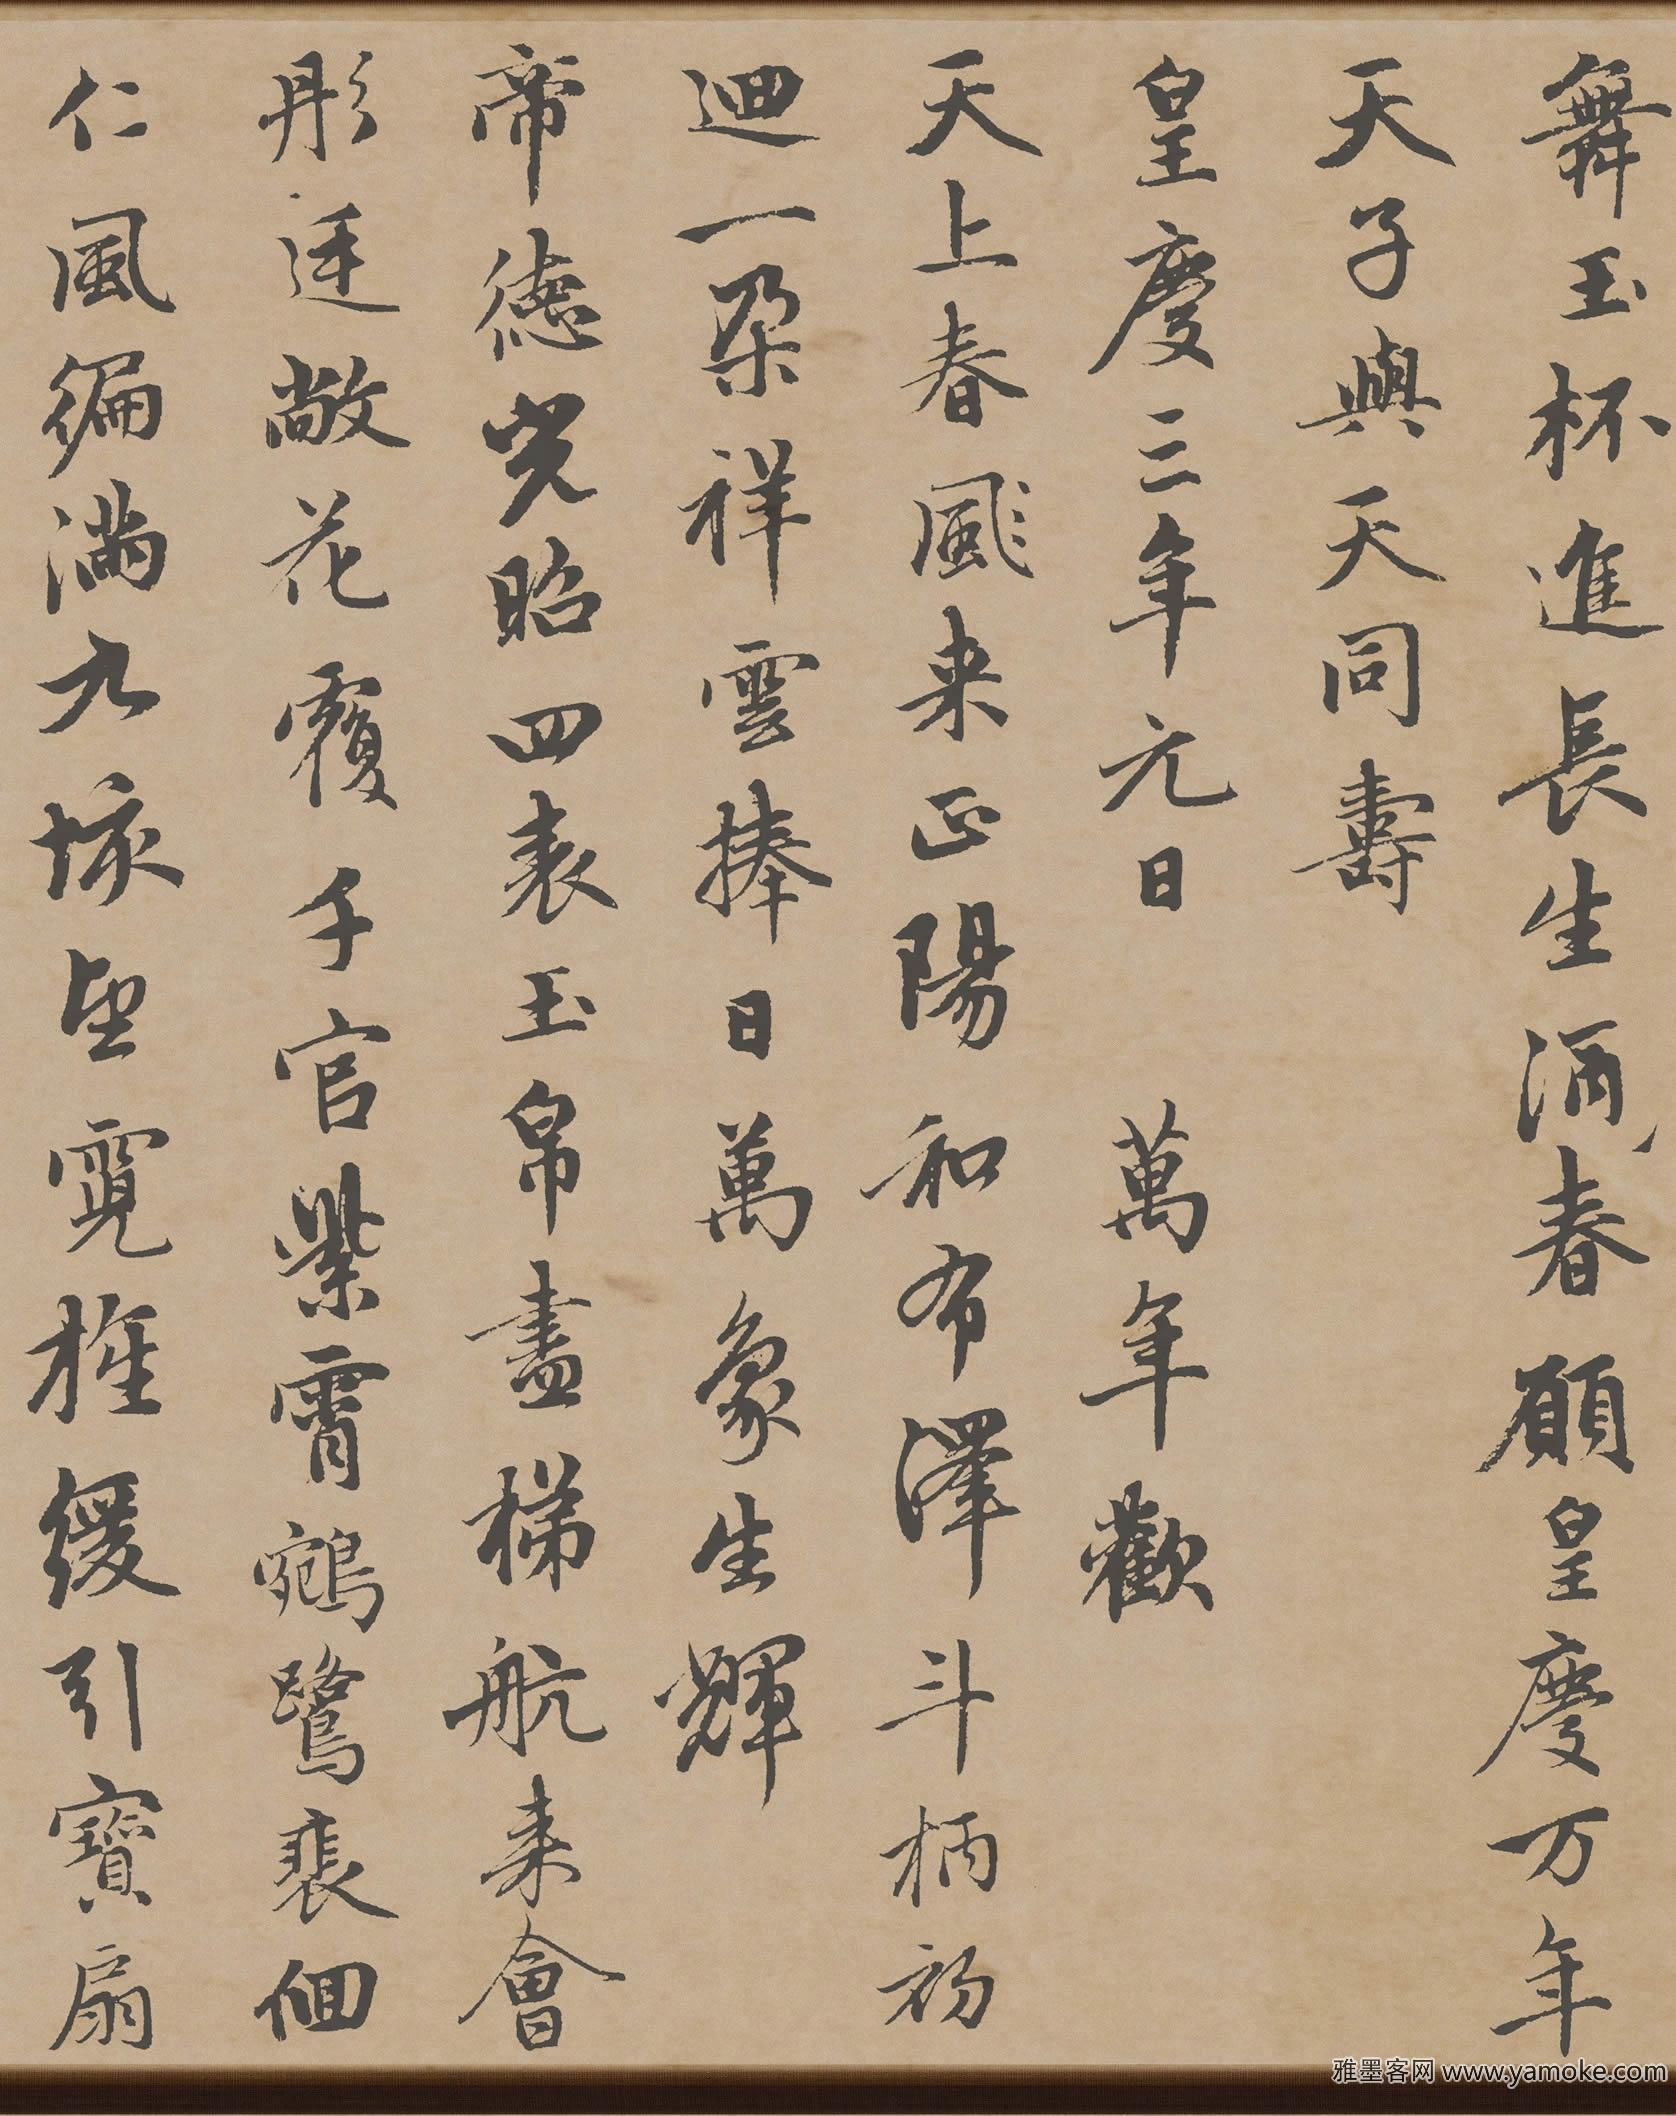 舞玉杯進長生酒春願皇慶万年
天子與天同壽
皇慶三年元日 萬年歡
天上春風来正陽和布澤斗柄初
迴一朶祥雲捧日萬象生輝
帝德光昭四表玉帛盡梯航来會
彤廷敞花覆千官紫霄鵷鷺裴佪
仁風徧滿九垓望霓旌緩引寶扇
雅墨客网 www.yamoke.com